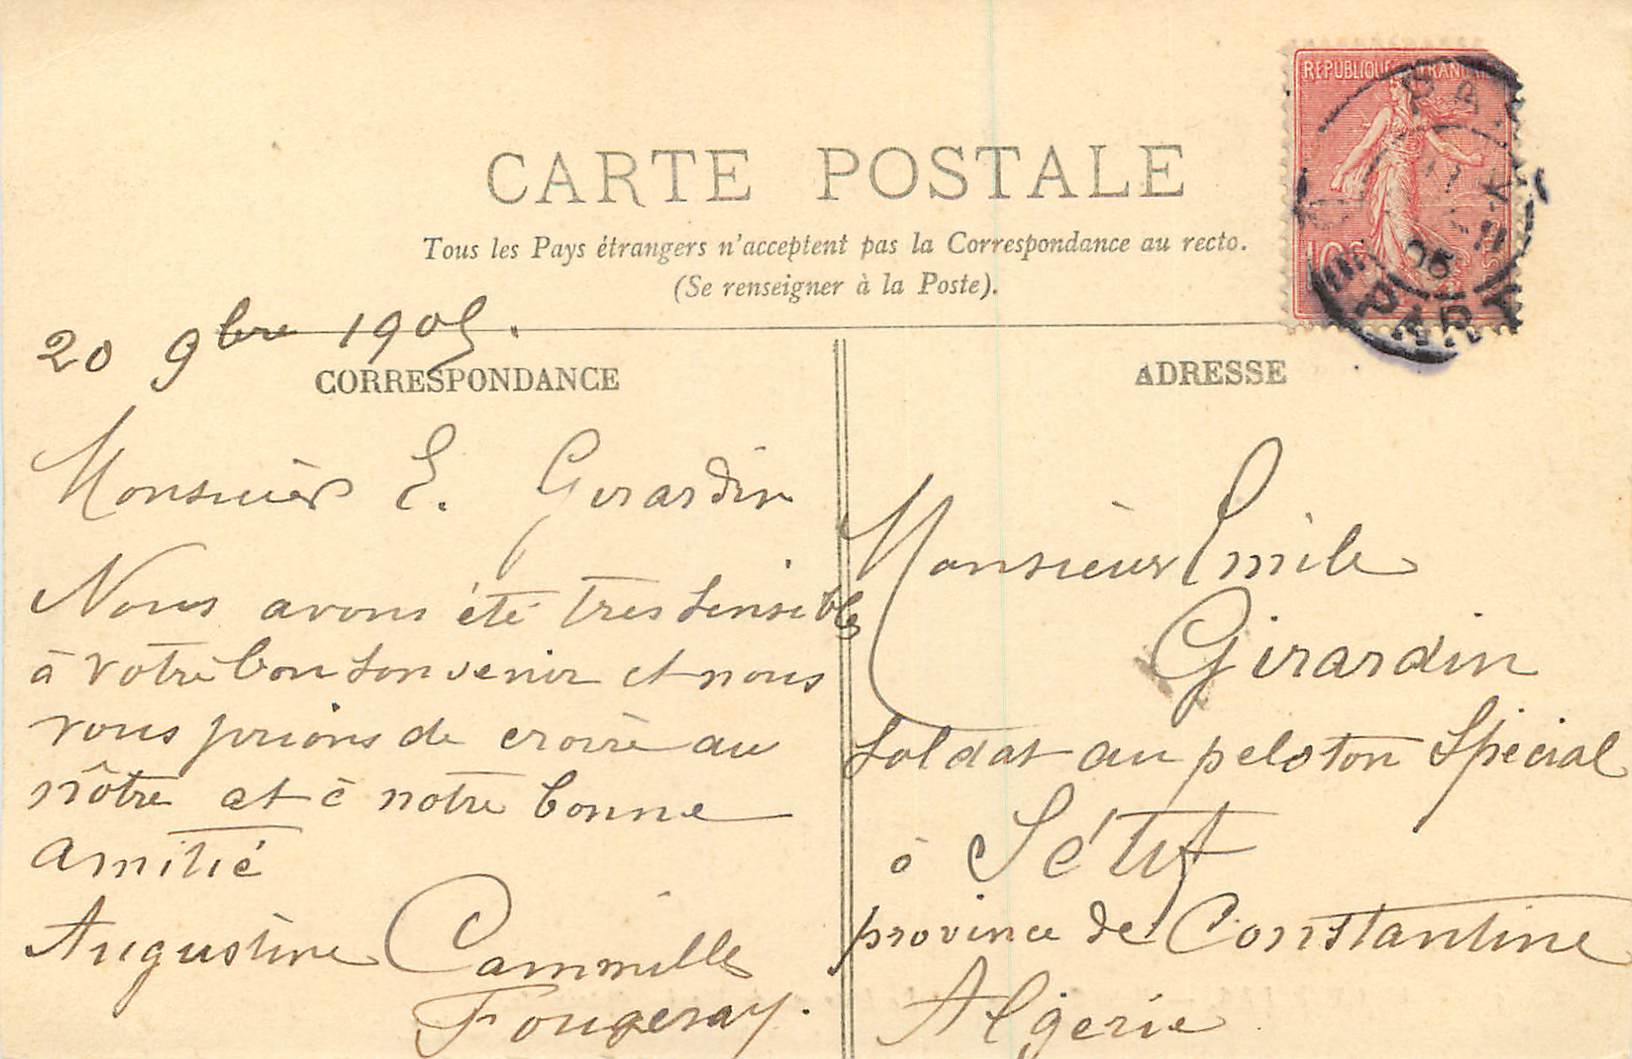 CARTE POSTALE
Tous les Pays étrangers n'acceptent pas la Correspondance au recto.
(Se renseigner à la Poste).
REPUBLIQUE FRANÇAISE
10c
PARIS
PARIS
05
20 9bre 1905.
CORRESPONDANCE
Monsieur E. Girardin
Nous avons été tres sensibles
à votre bon souvenir et nous
vous prions de croire au
nôtre et à notre bonne
amitié
Augustine Cammille
Fougeray.
ADRESSE
Monsieur Emile
Girardin
Soldat au peloton Spécial
à Sétif
province de Constantine
Algérie